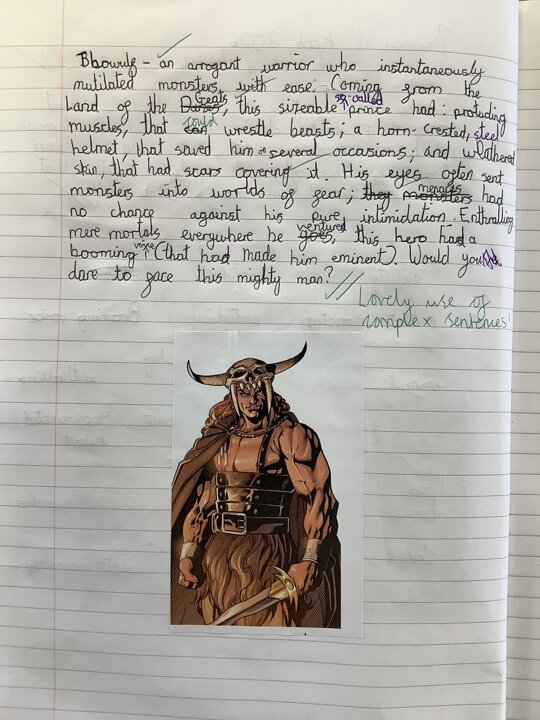 Beowulf - an arrogant warrior who instantaneously
mutilated monsters with ease. Coming from the
Land of the Danes Geats, this sizeable so-called prince had: protuding
muscles, that can could wrestle beasts; a horn-crested, steel
helmet, that saved him on several occasions; and weathered
skin, that had scars covering it. His eyes often sent
monsters into worlds of fear; they monsters menaces had
no chance against his pure intimidation. Enthralling
mere mortals everywhere he goes ventured, this hero had a
booming voice (that had made him eminent). Would you
dare to face this mighty man?
Lovely use of
complex sentences!